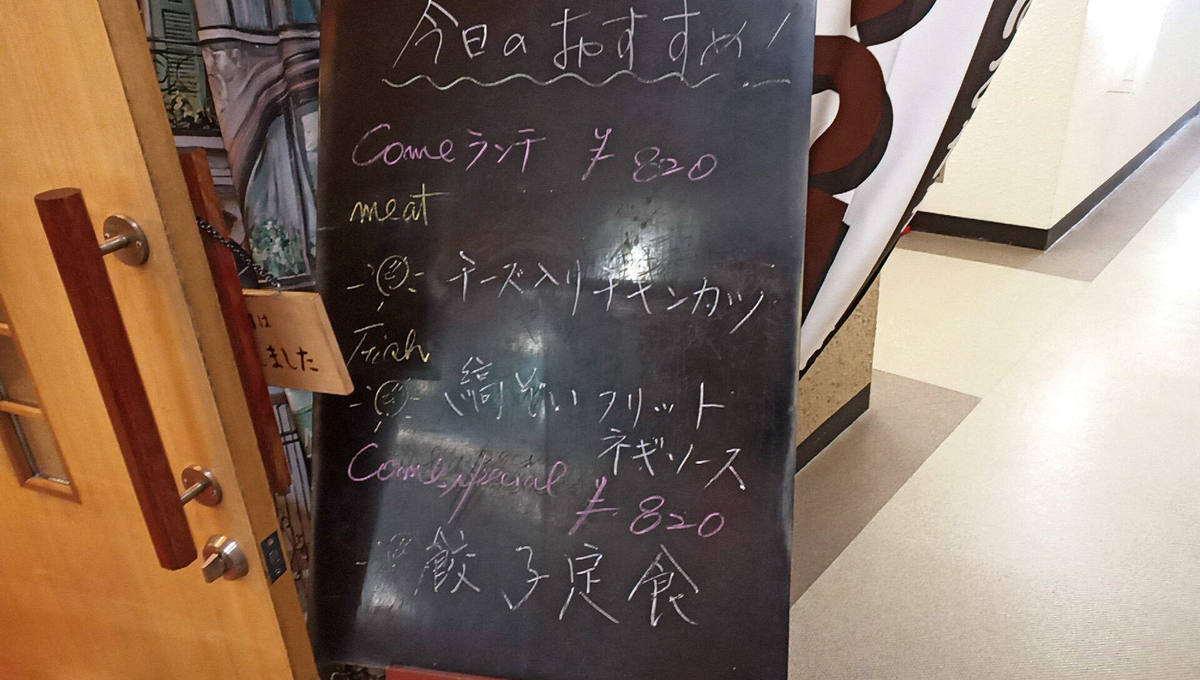 今日のおすすめ!
Comeランチ ¥820
meat
チーズ入りチキンカツ
Fish
縞ぞい フリット
ネギソース
Come special ¥820
餃子定食
は
ました